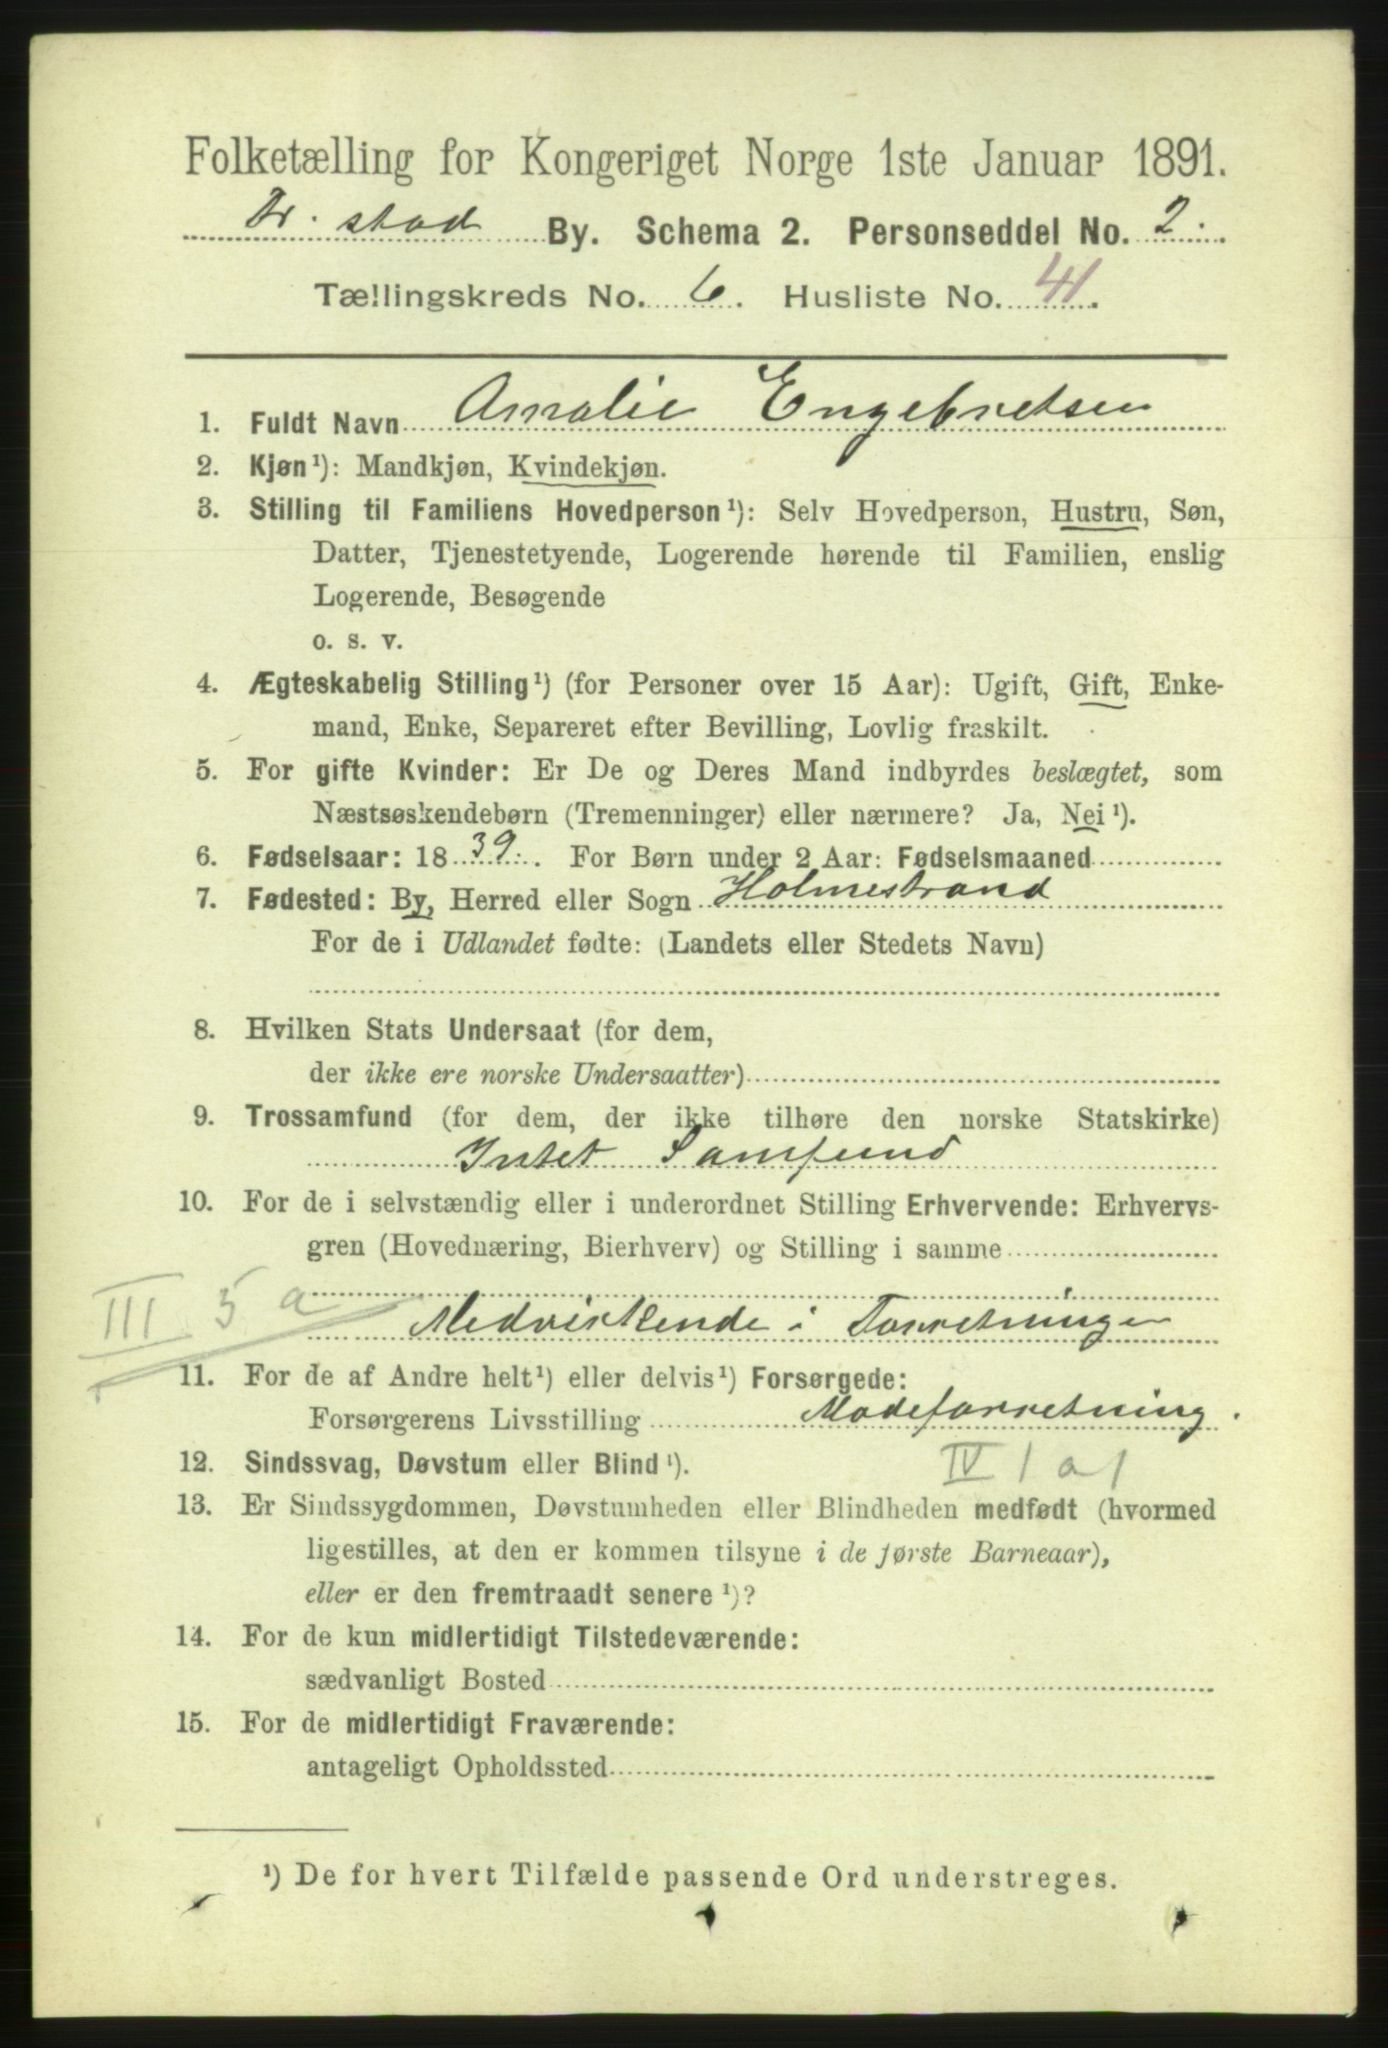 Folketælling for Kongeriget Norge 1ste Januar 1891.
Fr. stad By. Schema 2. Personseddel No. 2.
Tællingskreds No. 6. Husliste No. 41.
1. Fuldt Navn Amalie Engebretsen
2. Kjøn¹): Mandkjøn, Kvindekjøn.
3. Stilling til Familiens Hovedperson¹): Selv Hovedperson, Hustru, Søn,
Datter, Tjenestetyende, Logerende hørende til Familien, enslig
Logerende, Besøgende
o. s. v.
4. Ægteskabelig Stilling¹) (for Personer over 15 Aar): Ugift, Gift, Enke-
mand, Enke, Separeret efter Bevilling, Lovlig fraskilt.
5. For gifte Kvinder: Er De og Deres Mand indbyrdes beslægtet, som
Næstsøskendebørn (Tremenninger) eller nærmere? Ja, Nei¹).
6. Fødselsaar: 1839. For Børn under 2 Aar: Fødselsmaaned
7. Fødested: By, Herred eller Sogn Holmestrand
For de i Udlandet fødte: (Landets eller Stedets Navn)
8. Hvilken Stats Undersaat (for dem,
der ikke ere norske Undersaatter)
9. Trossamfund (for dem, der ikke tilhøre den norske Statskirke)
Intet Samfund
10. For de i selvstændig eller i underordnet Stilling Erhvervende: Erhvervs-
gren (Hovednæring, Bierhverv) og Stilling i samme
III 5 a
Medvirkende i Forretningen
11. For de af Andre helt¹) eller delvis¹) Forsørgede:
Forsørgerens Livsstilling Modeforretning.
12. Sindssvag, Døvstum eller Blind¹).
IV 1 a 1
13. Er Sindssygdommen, Døvstumheden eller Blindheden medfødt (hvormed
ligestilles, at den er kommen tilsyne i de første Barneaar),
eller er den fremtraadt senere¹)?
14. For de kun midlertidigt Tilstedeværende:
sædvanligt Bosted
15. For de midlertidigt Fraværende:
antageligt Opholdssted
¹) De for hvert Tilfælde passende Ord understreges.